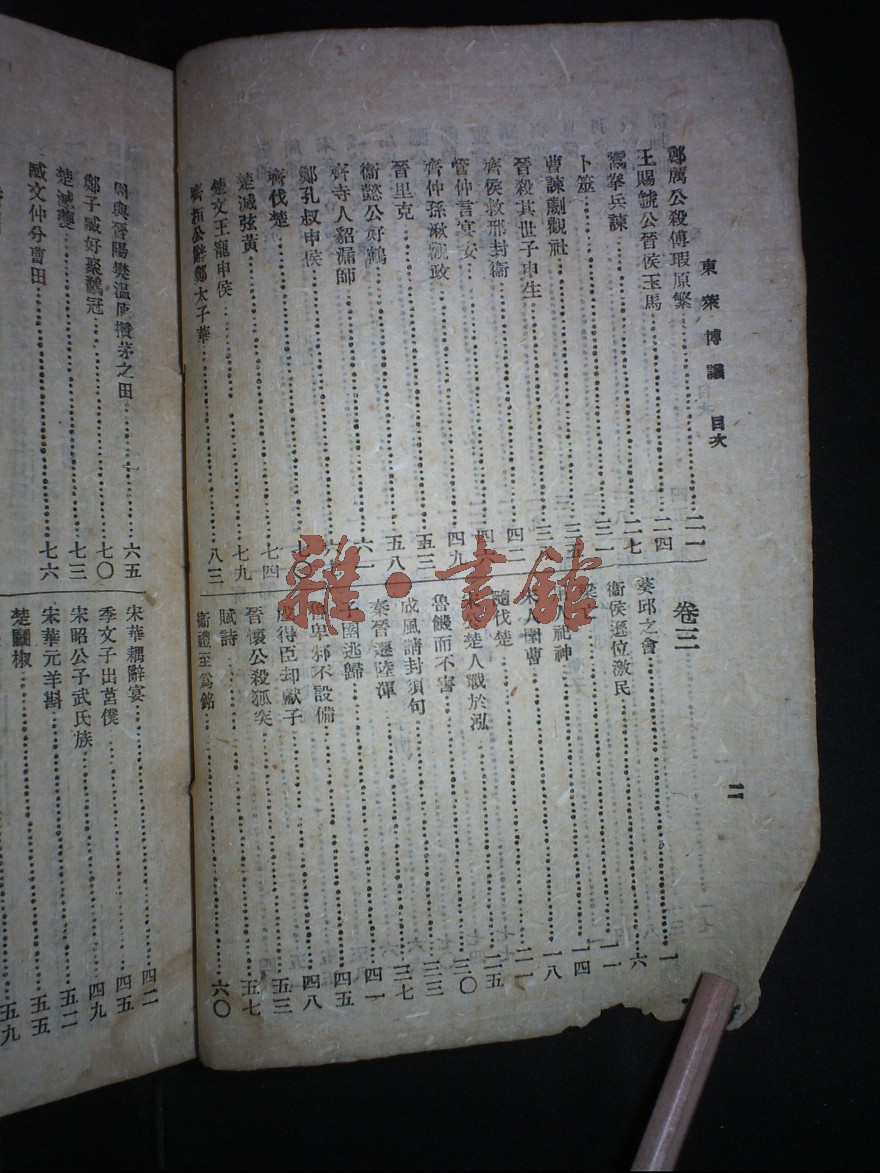 東萊博議 目次
二
鄭厲公殺傅瑕原繁……二一
王賜虢公晉侯玉馬……二四
鬻拳兵諫……二七
卜筮……三一
曹諫劌觀社……三五
晉殺其世子申生……三八
齊侯救邢封衞……四二
管仲言宴安
齊仲孫湫觀政……四九
晉里克……五三
衞懿公好鶴……五八
齊寺人貂漏師……六一
鄭孔叔申侯
齊伐楚……七〇
楚滅弦黃……七四
楚文王寵申侯……七九
齊桓公辭鄭太子華……八三
卷三
葵邱之會……一
衞侯遜位激民……六
梁亡……一一
人祀神……一四
宋人圍曹……一八
隨伐楚……二一
宋公楚人戰於泓……二五
魯饑而不害……三〇
成風請封須句……三三
秦晉遷陸渾……三七
子圉逃歸……四一
魯卑邾不設備……四五
成得臣却獻子……四八
晉懷公殺狐突……五三
賦詩……五七
衞禮至爲銘……六〇
周與晉陽樊溫原欑茅之田……六五
鄭子臧好聚鷸冠……七〇
楚滅夔……七三
臧文仲分曹田……七六
宋華耦辭宴……四二
季文子出莒僕……四五
宋昭公子武氏族……四九
宋華元羊斟……五二
楚鬭椒……五五
五九
雜·書館